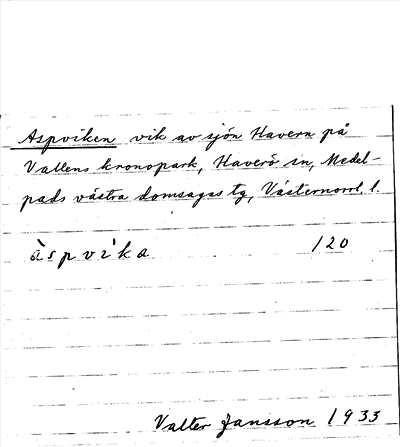 Aspviken vik av sjön Havern på
Vallens kronopark, Haverö sn, Medel-
pads västra domsagas tg, Västernorrl. l.
àspvìka 120
Valter Jansson 1933